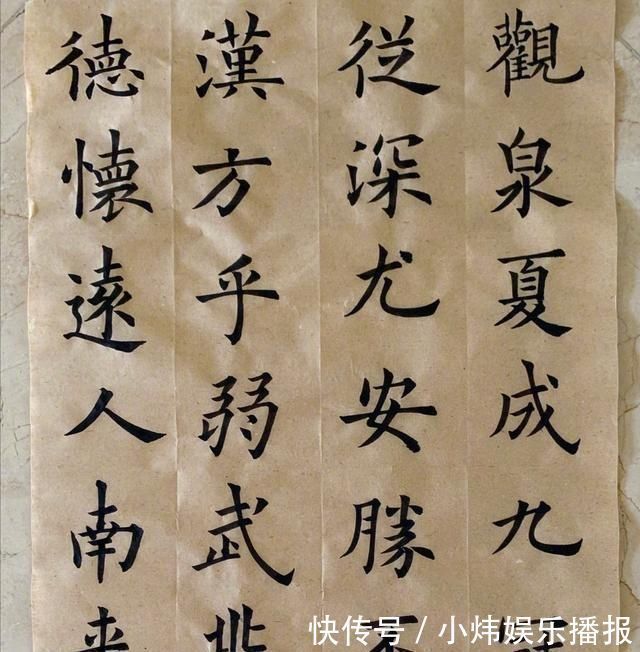 觀泉夏成九
從深尤安勝
漢方乎弱武
德懷遠人南
快传号/小炜娱乐播报